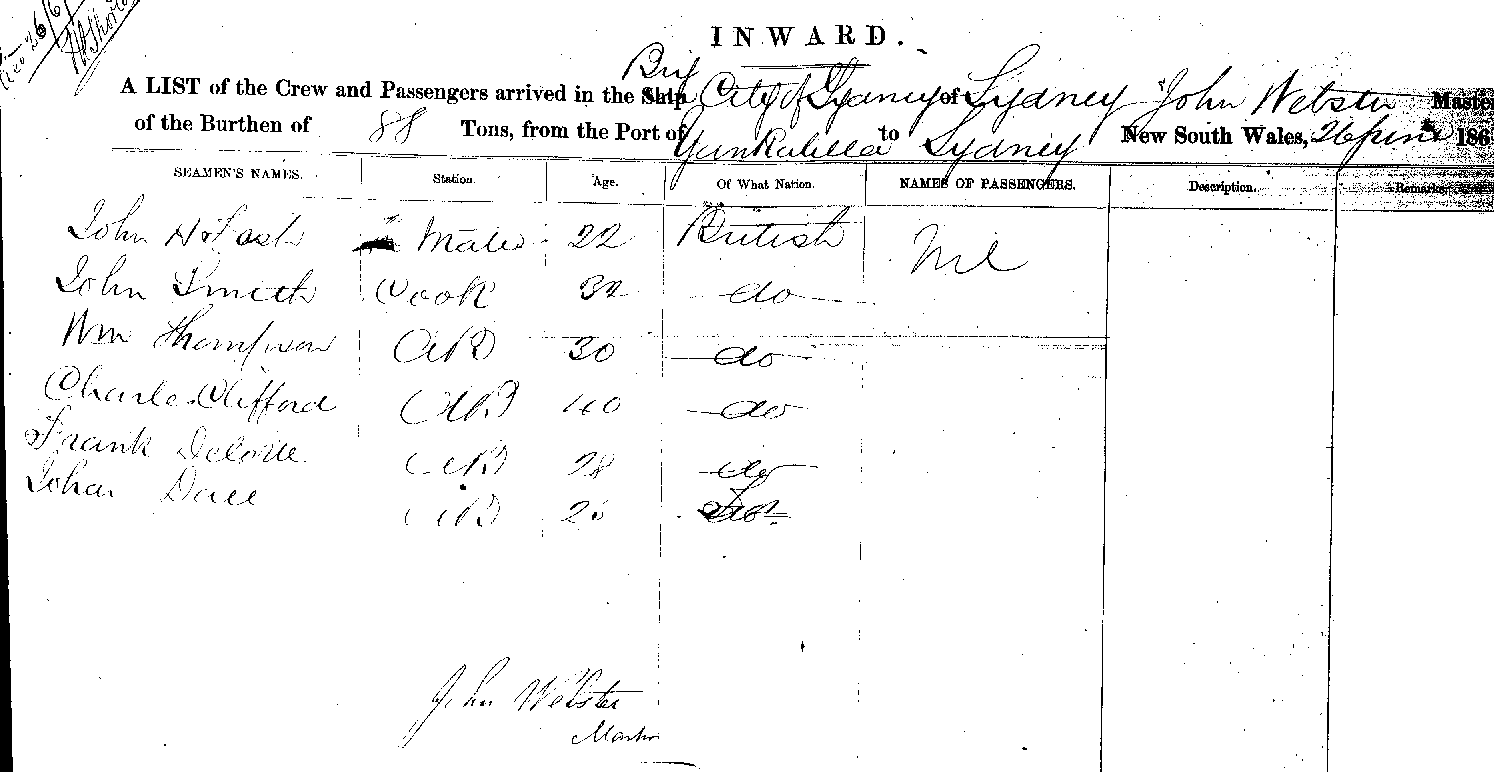 INWARD.
A LIST of the Crew and Passengers arrived in the Ship Brig City of Sydney of Sydney John Webster Master
of the Burthen of 88 Tons, from the Port of Yankalilla to Sydney New South Wales, 26 June 186
SEAMEN'S NAMES. Station. Age. Of What Nation. NAMES OF PASSENGERS. Description. Remarks
John Mate 22 British Nil
John Smith Cook 32 do
Wm Thompson AB 30 do
Charles Clifford AB 40 do
Frank AB 28 do
AB
John Webster
Master